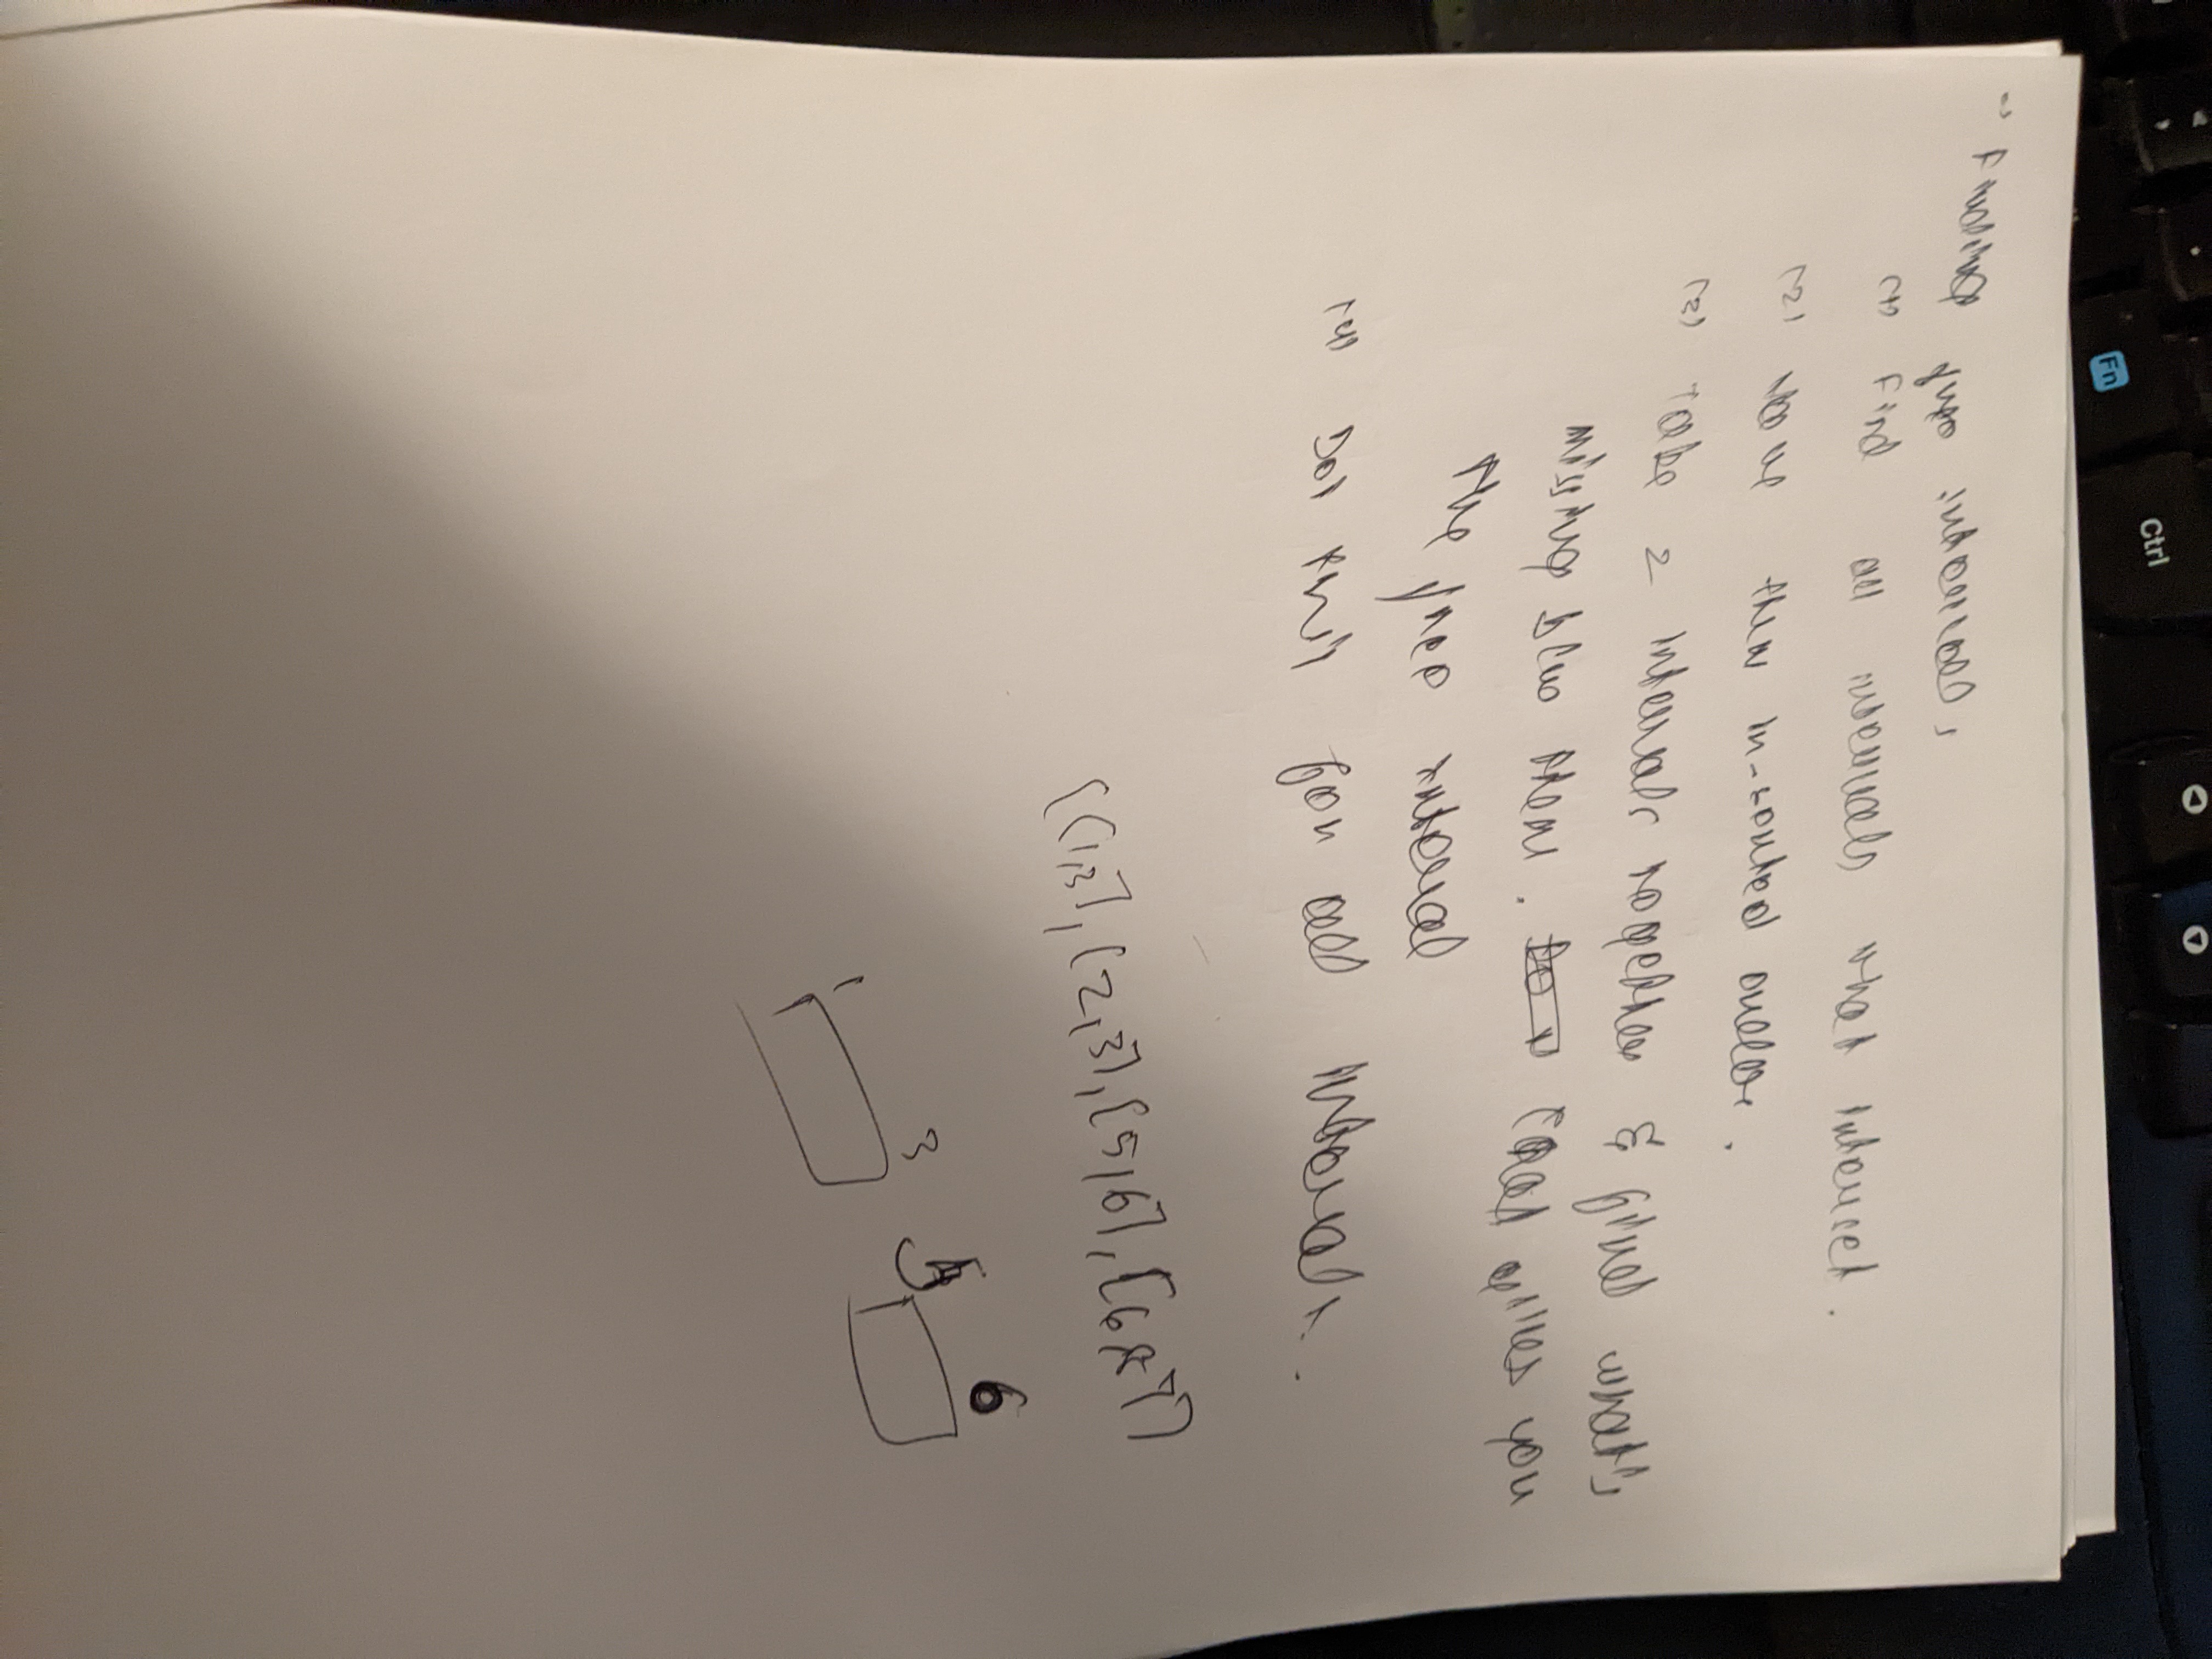 → Finding free intervals,
(1) Find all intervals that intersect.
(2) Have them in-sorted order.
(3) Take 2 intervals together & find what's
missing b/w them. that gives you
the free interval
(4) Do this for all intervals.
[[1,3], [2,3], [5,6], [6,8]]
1 3 5 6
Fn
Ctrl